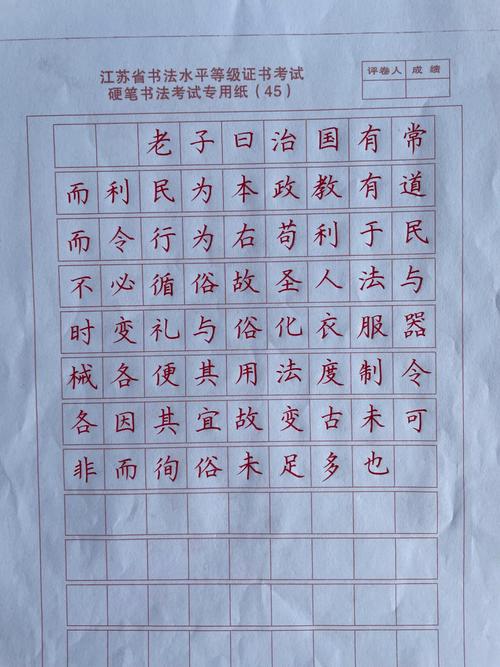 江苏省书法水平等级证书考试
硬笔书法考试专用纸（45）
评卷人 成绩
老子曰治国有常
而利民为本政教有道
而令行为右苟利于民
不必循俗故圣人法与
时变礼与俗化衣服器
械各便其用法度制令
各因其宜故变古未可
非而徇俗未足多也